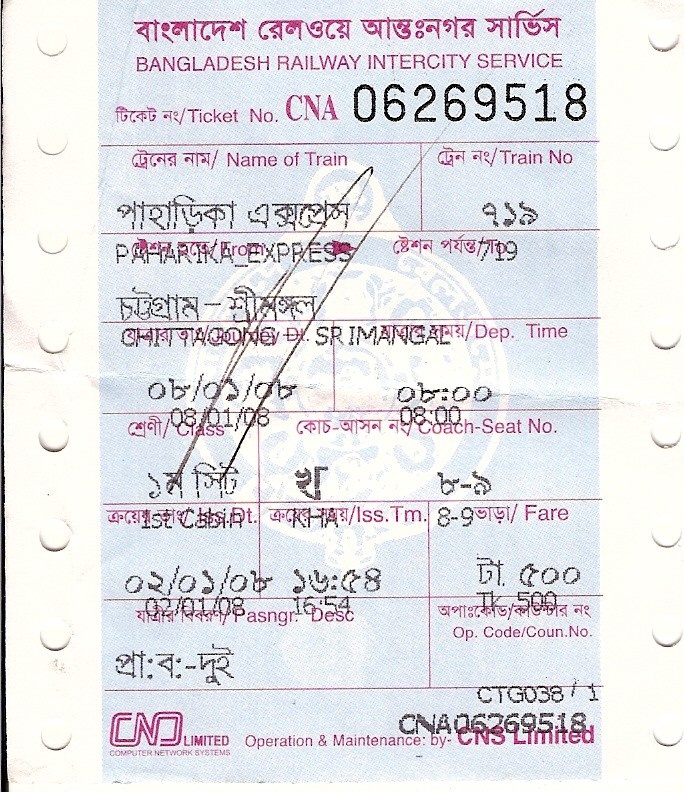 বাংলাদেশ রেলওয়ে আন্তঃনগর সার্ভিস
BANGLADESH RAILWAY INTERCITY SERVICE
টিকেট নং/Ticket No. CNA 06269518
ট্রেনের নাম/ Name of Train ট্রেন নং/Train No
পাহাড়িকা এক্সপ্রেস ৭১৯
ষ্টেশন হতে/From ষ্টেশন পর্যন্ত/To
PAHARIKA_EXPRESS 719
চট্টগ্রাম - শ্রীমঙ্গল
CHITTAGONG - SRIMANGAL
যাত্রার তাং/Journey Dt. যাত্রার সময়/Dep. Time
০৮/০১/০৮ ০৮:০০
08/01/08 08:00
শ্রেণী/ Class কোচ-আসন নং/Coach-Seat No.
১ম সিট খ ৮-৯
1st Cabin KHA 8-9
ক্রয়ের তাং/Iss.Dt. ক্রয়ের সময়/Iss.Tm. ভাড়া/ Fare
০২/০১/০৮ ১৬:৫৪ টা. ৫০০
02/01/08 16:54 TK 500
যাত্রীর বিবরণ/ Pasngr. Desc অপাঃকোড/কাউন্টার নং
Op. Code/Coun.No.
প্রা:ব:-দুই
CTG038 / 1
CNA06269518
CNS LIMITED
COMPUTER NETWORK SYSTEMS
Operation & Maintenance: by- CNS Limited